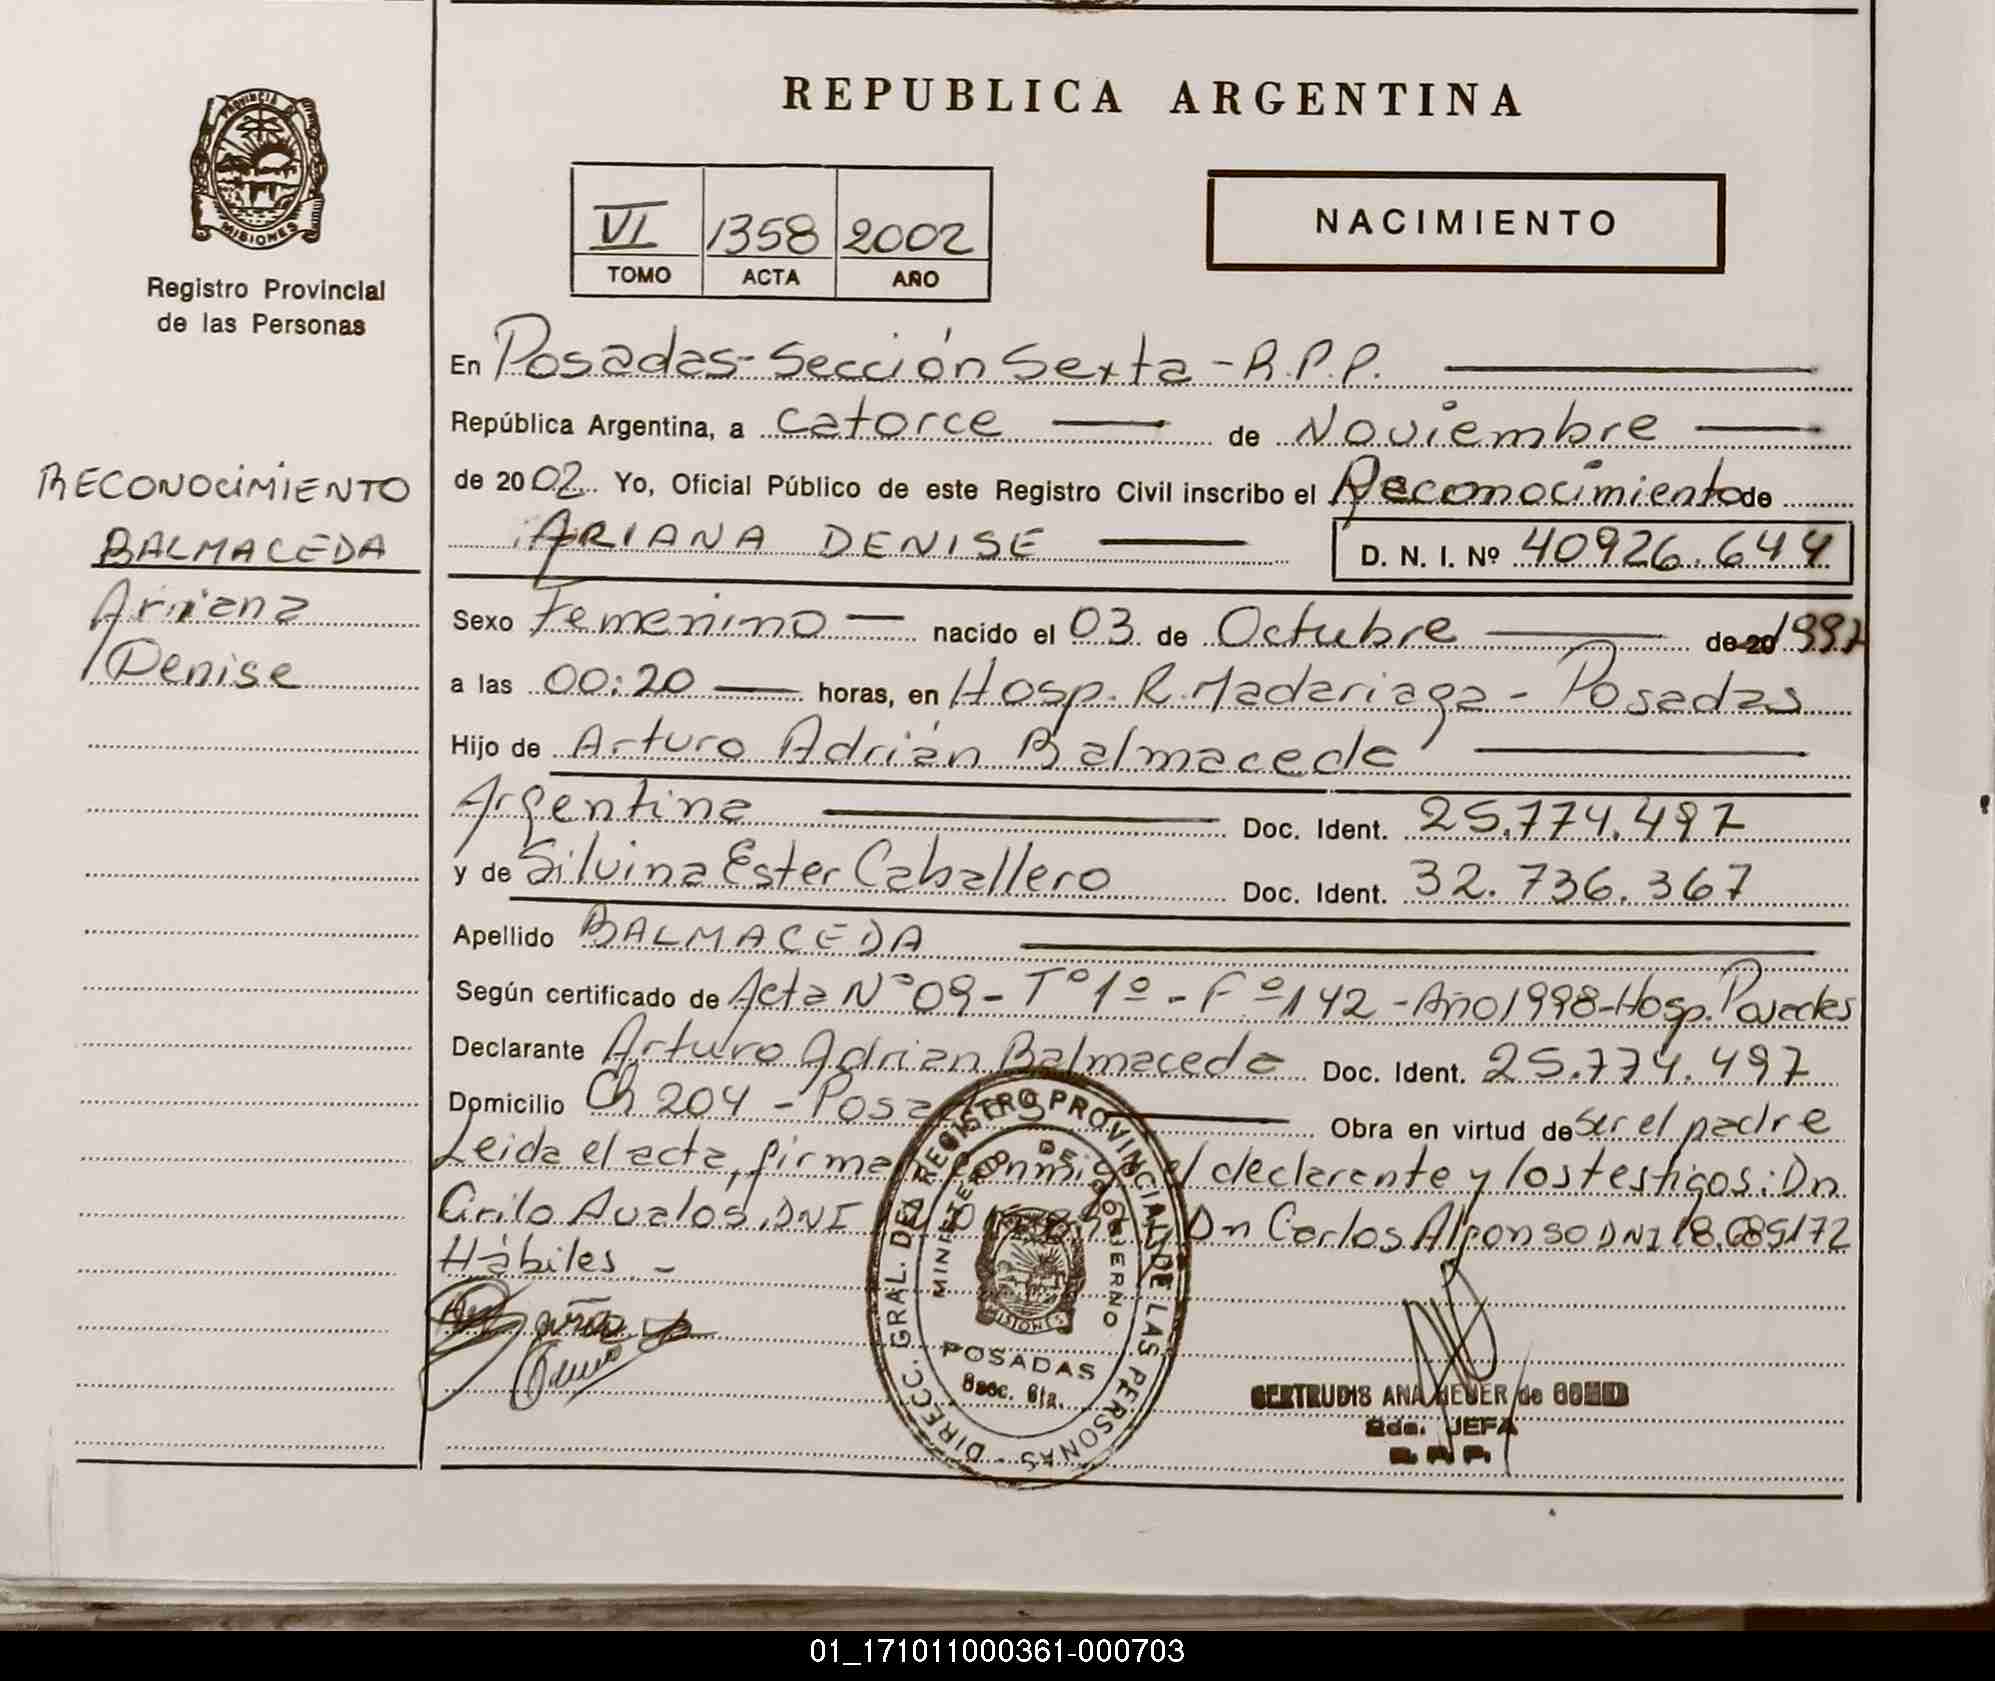 REPUBLICA ARGENTINA
PROVINCIA DE
MISIONES
Registro Provincial
de las Personas
VI 1358 2002
TOMO ACTA AÑO
NACIMIENTO
RECONOCIMIENTO
BALMACEDA
Ariana
Denise
En Posadas-Sección Sexta-R.P.P.
República Argentina, a catorce de Noviembre
de 2002. Yo, Oficial Público de este Registro Civil inscribo el Reconocimiento de
ARIANA DENISE D. N. I. Nº 40926.644
Sexo Femenino nacido el 03 de Octubre de 20 1997
a las 00:20 horas, en Hosp. R. Madariaga - Posadas
Hijo de Arturo Adrián Balmaceda
Argentina Doc. Ident. 25.774.497
y de Silvina Ester Caballero Doc. Ident. 32.736.367
Apellido BALMACEDA
Según certificado de Acta Nº 09 - Tº 1º - Fº 142 - Año 1998 - Hosp. Posadas
Declarante Arturo Adrian Balmaceda Doc. Ident. 25.774.497
Domicilio Ch 204 - Posadas Obra en virtud de ser el padre
Leida el acta, firma conmigo el declarante y los testigos: Dn
Cirilo Avalos, DNI Dn Carlos Alfonso DNI 18.689172
Hábiles -
DIRECC. GRAL. DEL REGISTRO PROVINCIAL DE LAS PERSONAS
MINISTERIO DE GOBIERNO
MISIONES
POSADAS
Secc. 6ta.
GERTRUDIS ANA de
JEFA
R. P. P.
01_171011000361-000703